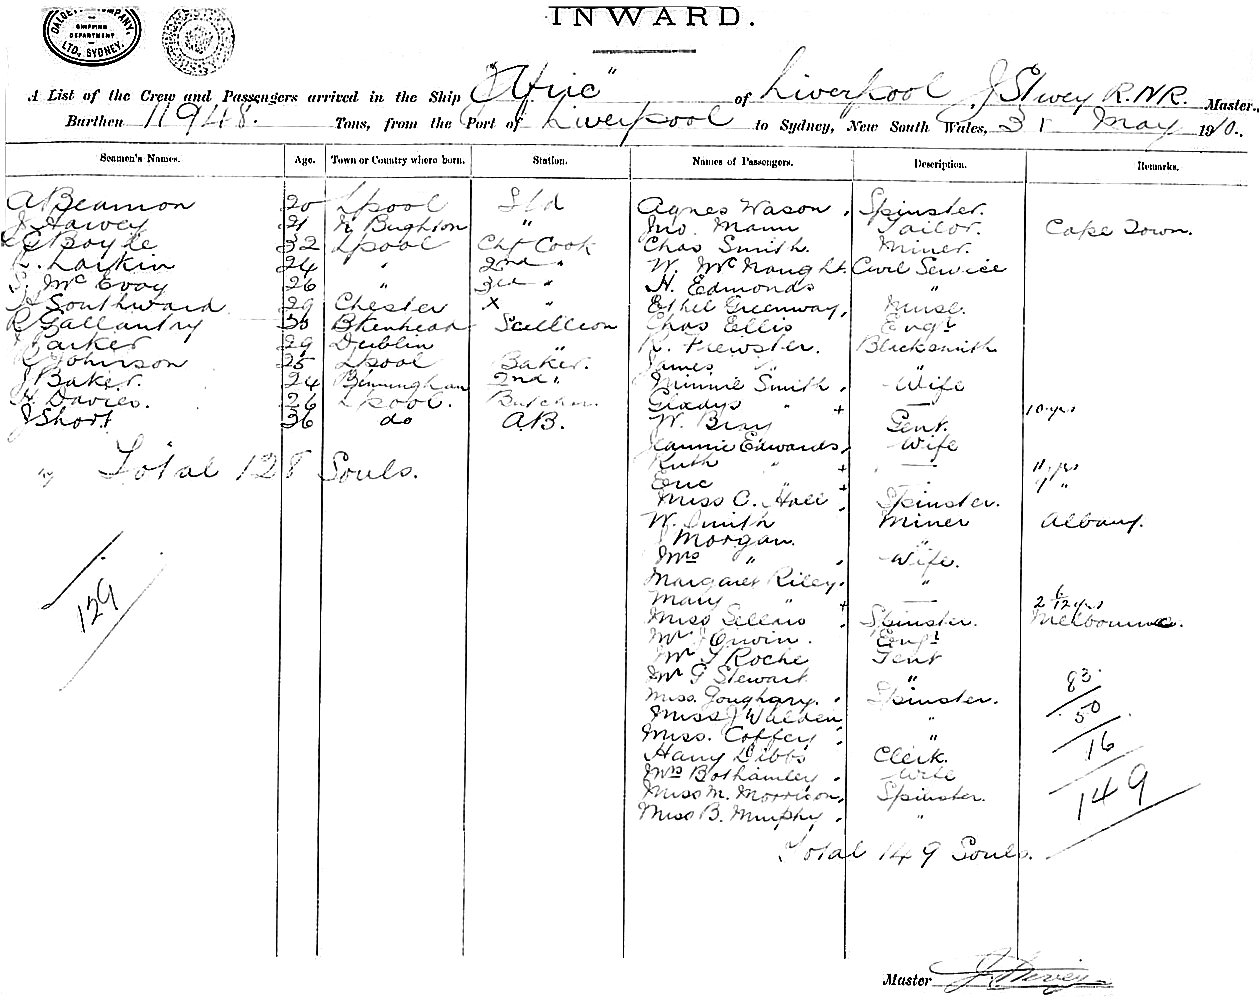 DALGETY & COMPANY, LTD, SYDNEY.
SHIPPING DEPARTMENT
INWARD.
A List of the Crew and Passengers arrived in the Ship "Afric" of Liverpool J Stivey R.N.R. Master.,
Burthen 11948. Tons, from the Port of Liverpool to Sydney, New South Wales, 31 May 1910.
Seamen's Names. Age. Town or Country where born. Station. Names of Passengers. Description. Remarks.
A Beamon 20 Lpool Std Agnes Wason Spinster.
J Harvey 21 N Brighton " Jno. Mann Tailor. Cape Town.
Boyle 32 Lpool Chf Cook Chas Smith Miner.
Larkin 24 " 2nd " W. McNaught Civil Service
McEvoy 26 " 3rd " H. Edmonds "
Southward 29 Chester x " Ethel Greenway, Nurse.
R Gallantry 35 Bkenhead Scullion Chas Ellis Engr
Parker 29 Dublin " R. Prewster. Blacksmith
Johnson 25 Lpool Baker. James "
J Baker. 24 Birmingham 2nd " Minnie Smith. Wife
H. Davies. 26 Lpool. Butcher. Gladys " + — 10 yrs
J Short 36 do A.B. W. Bray Gent.
Jeannie Edwards, Wife
Ruth " + — 11 yrs
Eric " +
Miss C. Hall Spinster.
W. Smith Miner Albany.
Morgan. "
Mrs " Wife.
Margaret Riley. "
Mary " + — 2 6/12 yrs
Miss Sellars Spinster. Melbourne.
Mr J Erwin. Engr
Mr T Roche Gent
Mr G Stewart "
Miss Spinster.
Miss J Walden "
Miss. Coffey "
Harry Dibbs Clerk.
Mrs Bothamley Wife
Miss M. Morrison, Spinster.
Miss B. Murphy "
Total 128 Souls.
129
83
50
16
149
Total 149 Souls.
Master J Stivey